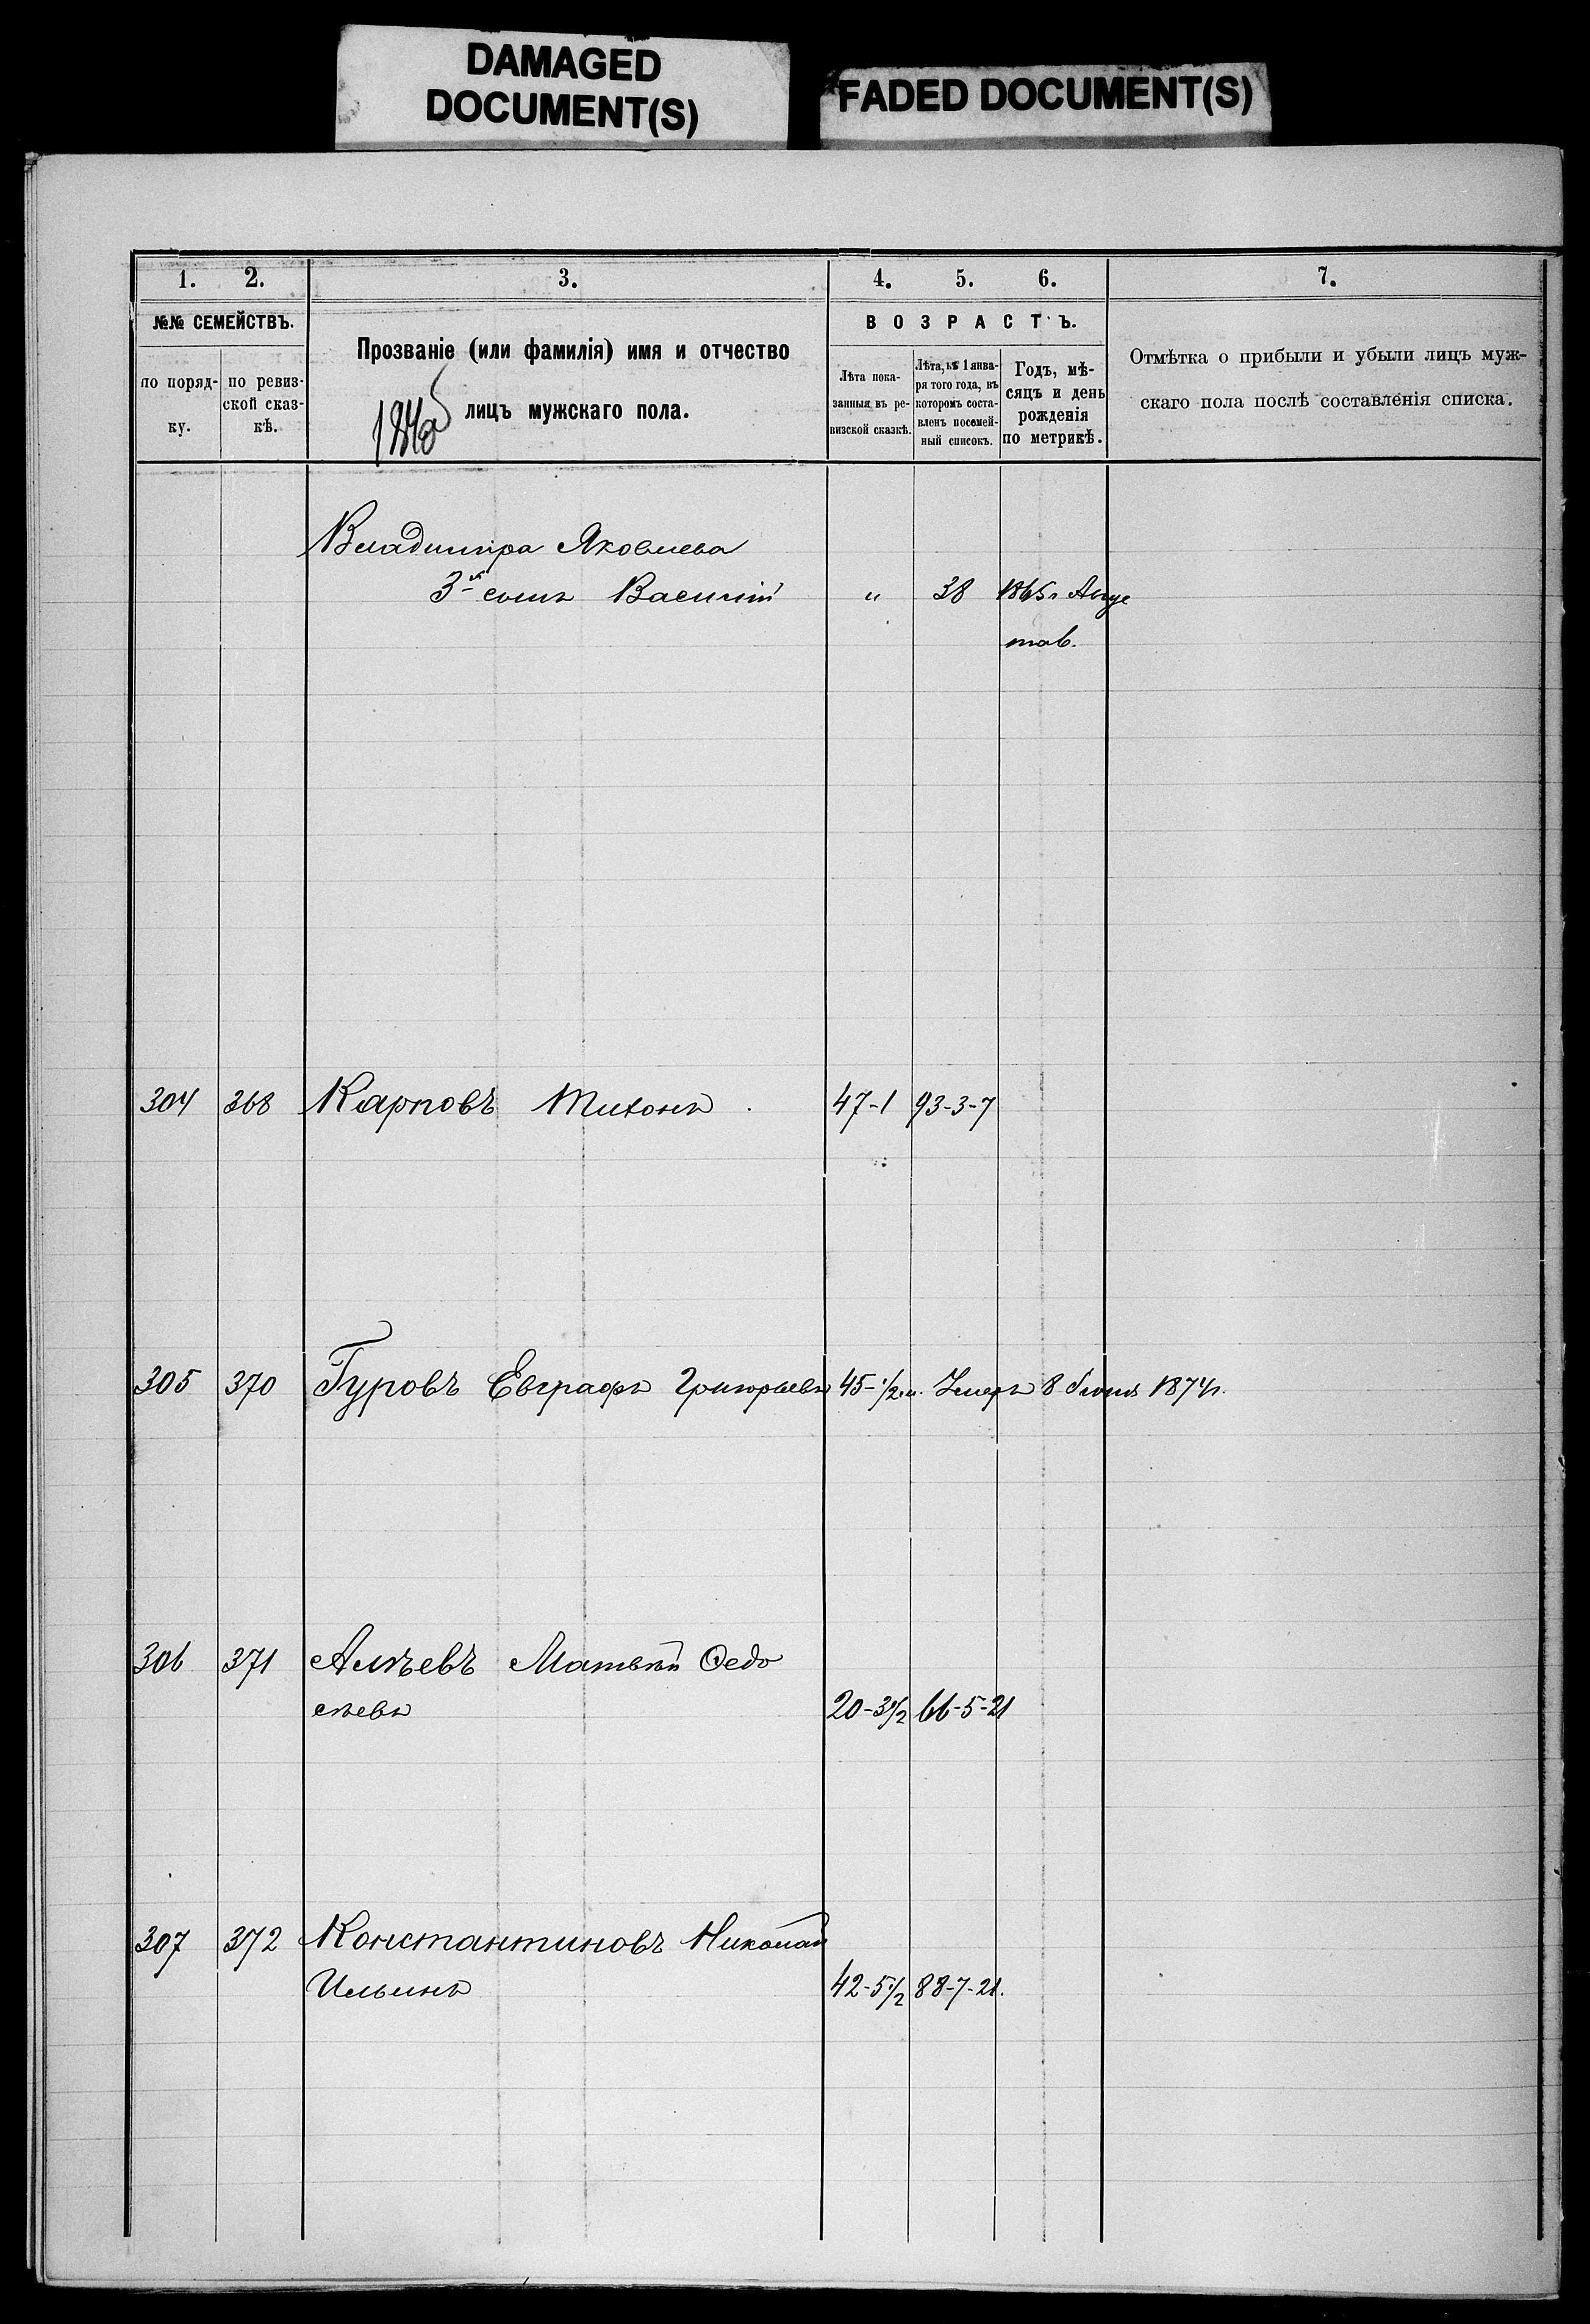 DAMAGED
DOCUMENT(S)
FADED DOCUMENT(S)
1. 2. 3. 4. 5. 6. 7.
№№ СЕМЕЙСТВЪ.
ВОЗРАСТЪ.
по поряд-
ку.
по ревиз-
ской сказ-
кѣ.
Прозваніе (или фамилія) имя и отчество
лицъ мужскаго пола.
Лѣта пока-
занныя въ ре-
визской сказкѣ.
Лѣта, къ 1 янва-
ря того года, въ
которомъ соста-
вленъ посемей-
ный списокъ.
Годъ, мѣ-
сяцъ и день
рожденія
по метрикѣ.
Отмѣтка о прибыли и убыли лицъ муж-
скаго пола послѣ составленія списка.
Владиміра Яковлева
3й сынъ Василій " 38 1865г Авгу
304 368 Карповъ Тихонъ 47-1 93-3-7
305 370 Гуровъ Евграфъ Григорьевъ 45-1/2м. Умеръ 8 Іюня 1874г.
306 371 Алѣевъ Матвѣй Ѳедо
сѣевъ 20-3 1/2 66-5-21
307 372 Константиновъ Николай
Ильинъ 42-5 1/2 88-7-21.